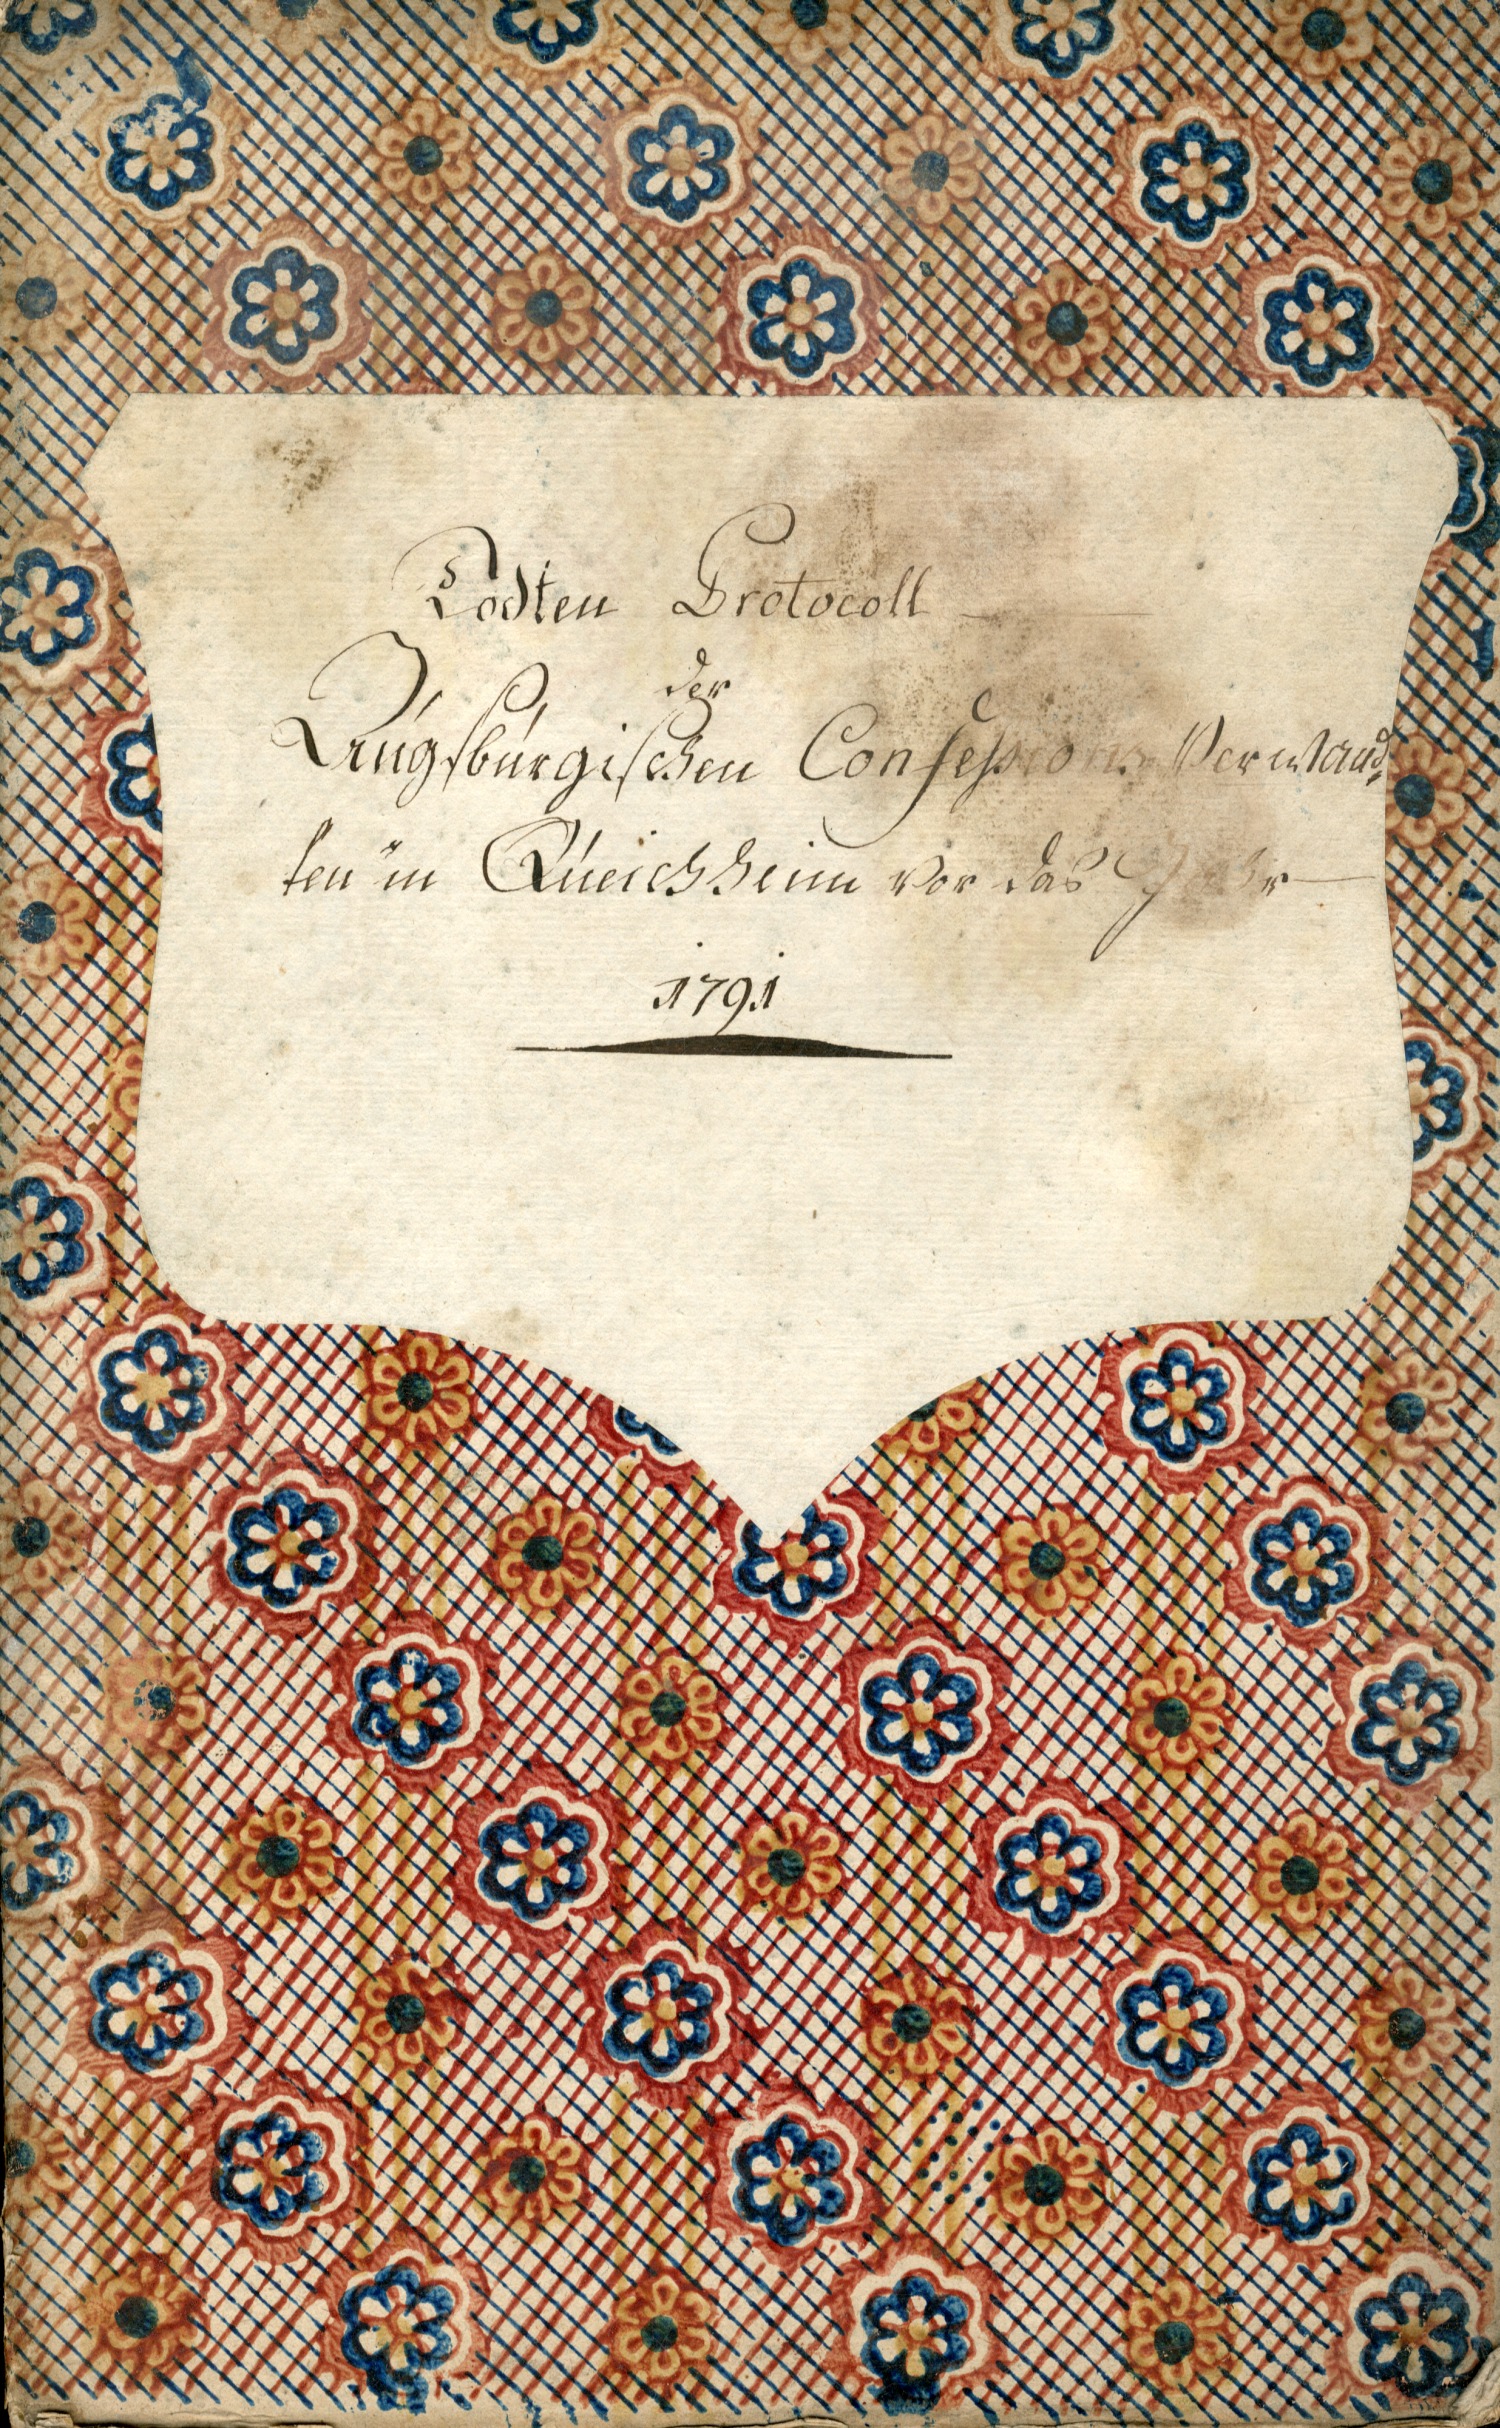 Todten Protocoll
der
Augsburgischen Confessions Verwand-
ten in Queichheim vor das Jahr
1791